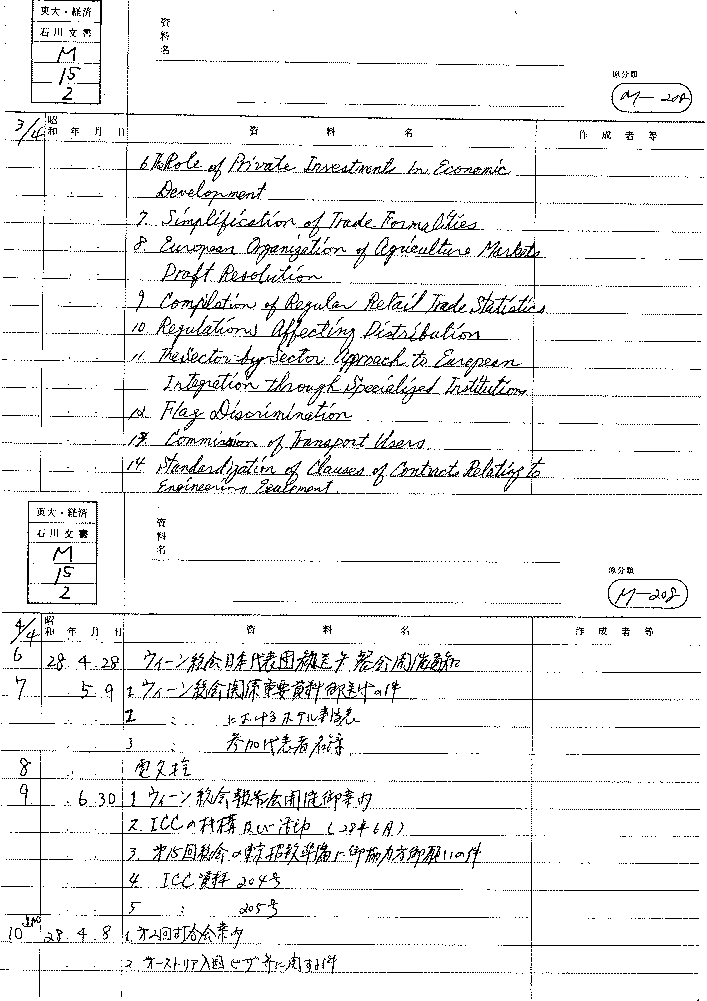 東大・経済
石川文書
M
15
2
資料名
原分類
M-208
3/4
昭和 年 月 日 資 料 名 作成者等
6 The Role of Private Investments in Economic
Development
7. Simplification of Trade Formalities
8. European Organization of Agriculture Markets
Draft Resolution
9 Compilation of Regular Retail Trade Statistics
10 Regulations Affecting Distribution
11. The Sector-by-Sector Approach to European
Integration through Specialized Institutions
12 Flag Discrimination
13. Commission of Transport Users
14 Standardization of Clauses of Contracts Relating to
Engineering
東大・経済
石川文書
M
15
2
資料名
原分類
M-208
4/4
昭和 年 月 日 資 料 名 作成者等
6 28. 4. 28 ウィーン総会日本代表団
7 5. 9 1. ウィーン総会関係重要資料御送付の件
2 〃 におけるホテル
3 〃 参加代表者名簿
8
9 6. 30 1 ウィーン総会報告会開催御案内
2. ICCの機構及び活動 (28年6月)
3. 第15回総会の東京招致準備に御協力方御願いの件
4. ICC資料 204号
5 〃 205号
10 28. 4. 8 1. 第2回打合会案内
2. オーストリア入国ビザ等に関する件